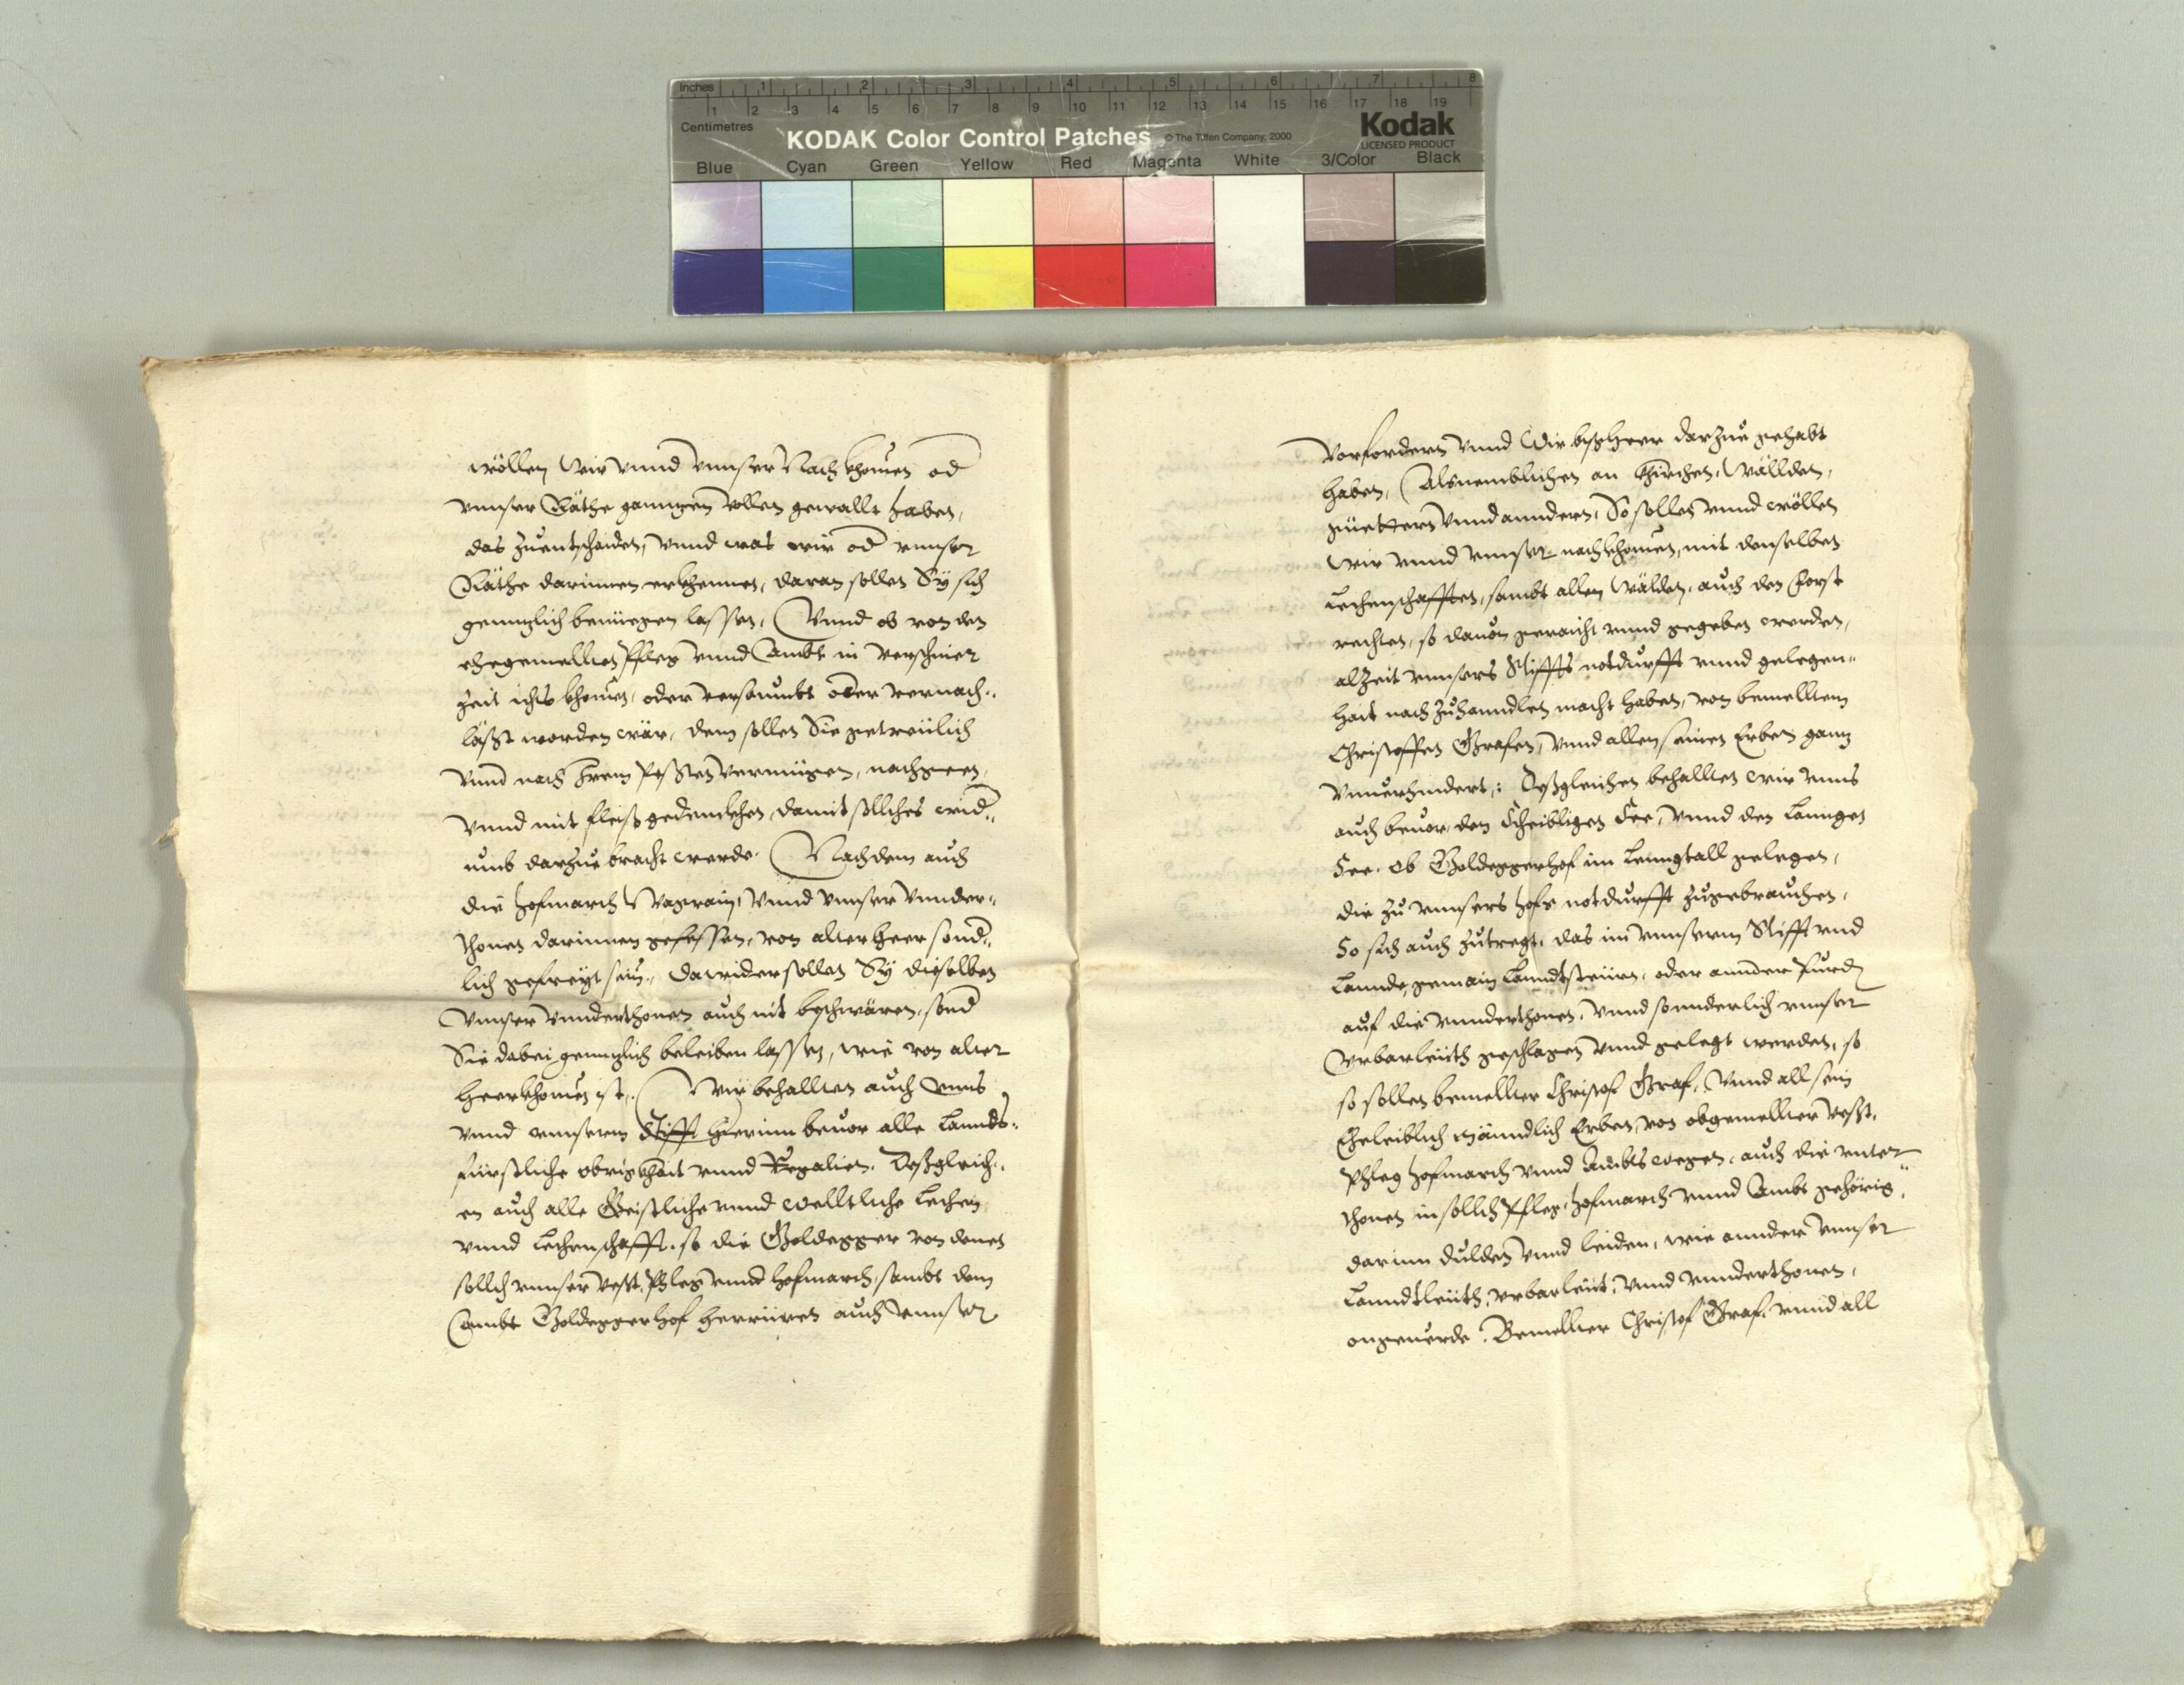 Inches 1 2 3 4 5 6 7 8
Centimetres 1 2 3 4 5 6 7 8 9 10 11 12 13 14 15 16 17 18 19
KODAK Color Control Patches © The Tiffen Company, 2000 Kodak
LICENSED PRODUCT
Blue Cyan Green Yellow Red Magenta White 3/Color Black
wöllen Wir vnnd vnnser Nachkhomen od
vnnser Räthe ganntzen vollen gewallt haben,
das zuentschaiden, Vnnd was wir od vnnser
Räthe darinnen erkhennen, daran sollen Sy sich
genntzlich benüegen lassen, Vnnd ob von den
eegemellten Pfleg vnnd Ambt in verschiner
zeit ichts khomen, oder versaumbt oder vernach..
lässt worden wär, dem sollen Sie getreulich
Vnnd nach Irem pessten vermügen, nachgeen,
Vnnd mit fleiss gedennkhen, damit sollches wid..
umb darzue bracht werde. Nachdem auch
die Hofmarch Wagrain, Vnnd vnnser Vnnder..
thonen darinnen gesessen, von alter heer sond..
lich gefreyt sein, dawider sollen Sy dieselben
Vnnser vnnderthonen auch nit beschwären, sond
Sie dabei genntzlich beleiben lassen, wie von alter
heerkhomen ist. Wir behallten auch vnns
vnnd vnnserm Stifft hierinn beuor alle Lannds..
fürstliche obrigkhait vnnd Regalien. Dessgleich..
en auch alle Geistliche vnnd welltliche Lechen
vnnd Lechenschafft, so die Goldegger von denen
sollch vnnser Vesst, Phleg vnnd Hofmarch, sambt dem
Ambt Goldeggerhof herrüeren auch vnnser
Vorfordern vnnd Wir bissheer darzue gehabt
haben, Alsnemblichen an Khirchen, Wällden,
güettern Vnnd anndern, So sollen vnnd wöllen
Wir vnnd vnnser nachkhomen, mit denselben
Lechenschafften, sambt allen Wälden, auch den Forst
rechten, so dauon geraicht vnnd gegeben werden,
alzeit vnnsers Stiffts notdurfft vnnd gelegen..
hait nach zuhanndlen macht haben, von bemelltem
Christoffen Grafen, Vnnd allen seinen Erben gantz
Vnuerhindert: Dessgleichen behallten wir vnns
auch beuor, den Scheibligen See, Vnnd den Lanngen
See. Ob Goldeggerhof im Lenngtall gelegen,
die zu vnnsers Hofs notdurfft zugebrauchen,
So sich auch zutregt, das in vnnserm Stifft vnd
Lannde, gemain Lanndtsteüren, oder annder
auf die Vnnderthonen, Vnnd sonnderlich vnnser
Vrbarleüth geschlagen vnnd gelegt werden, so
so sollen bemellter Christof Graf, Vnnd all sein
Eheleiblich männdlich Erben, von obgemellter Vesst,
Phleg Hofmarch vnnd Ambts wegen, auch die vnter
thonen in sollch Pfleg, Hofmarch vnnd Ambt gehörig,
darinn dulden vnnd leiden, wie annder vnnser
Lanndtleüth, Vrbarleüt, Vnnd vnnderthonen,
ongeuerde. Bemellter Christof Graf, vnnd all